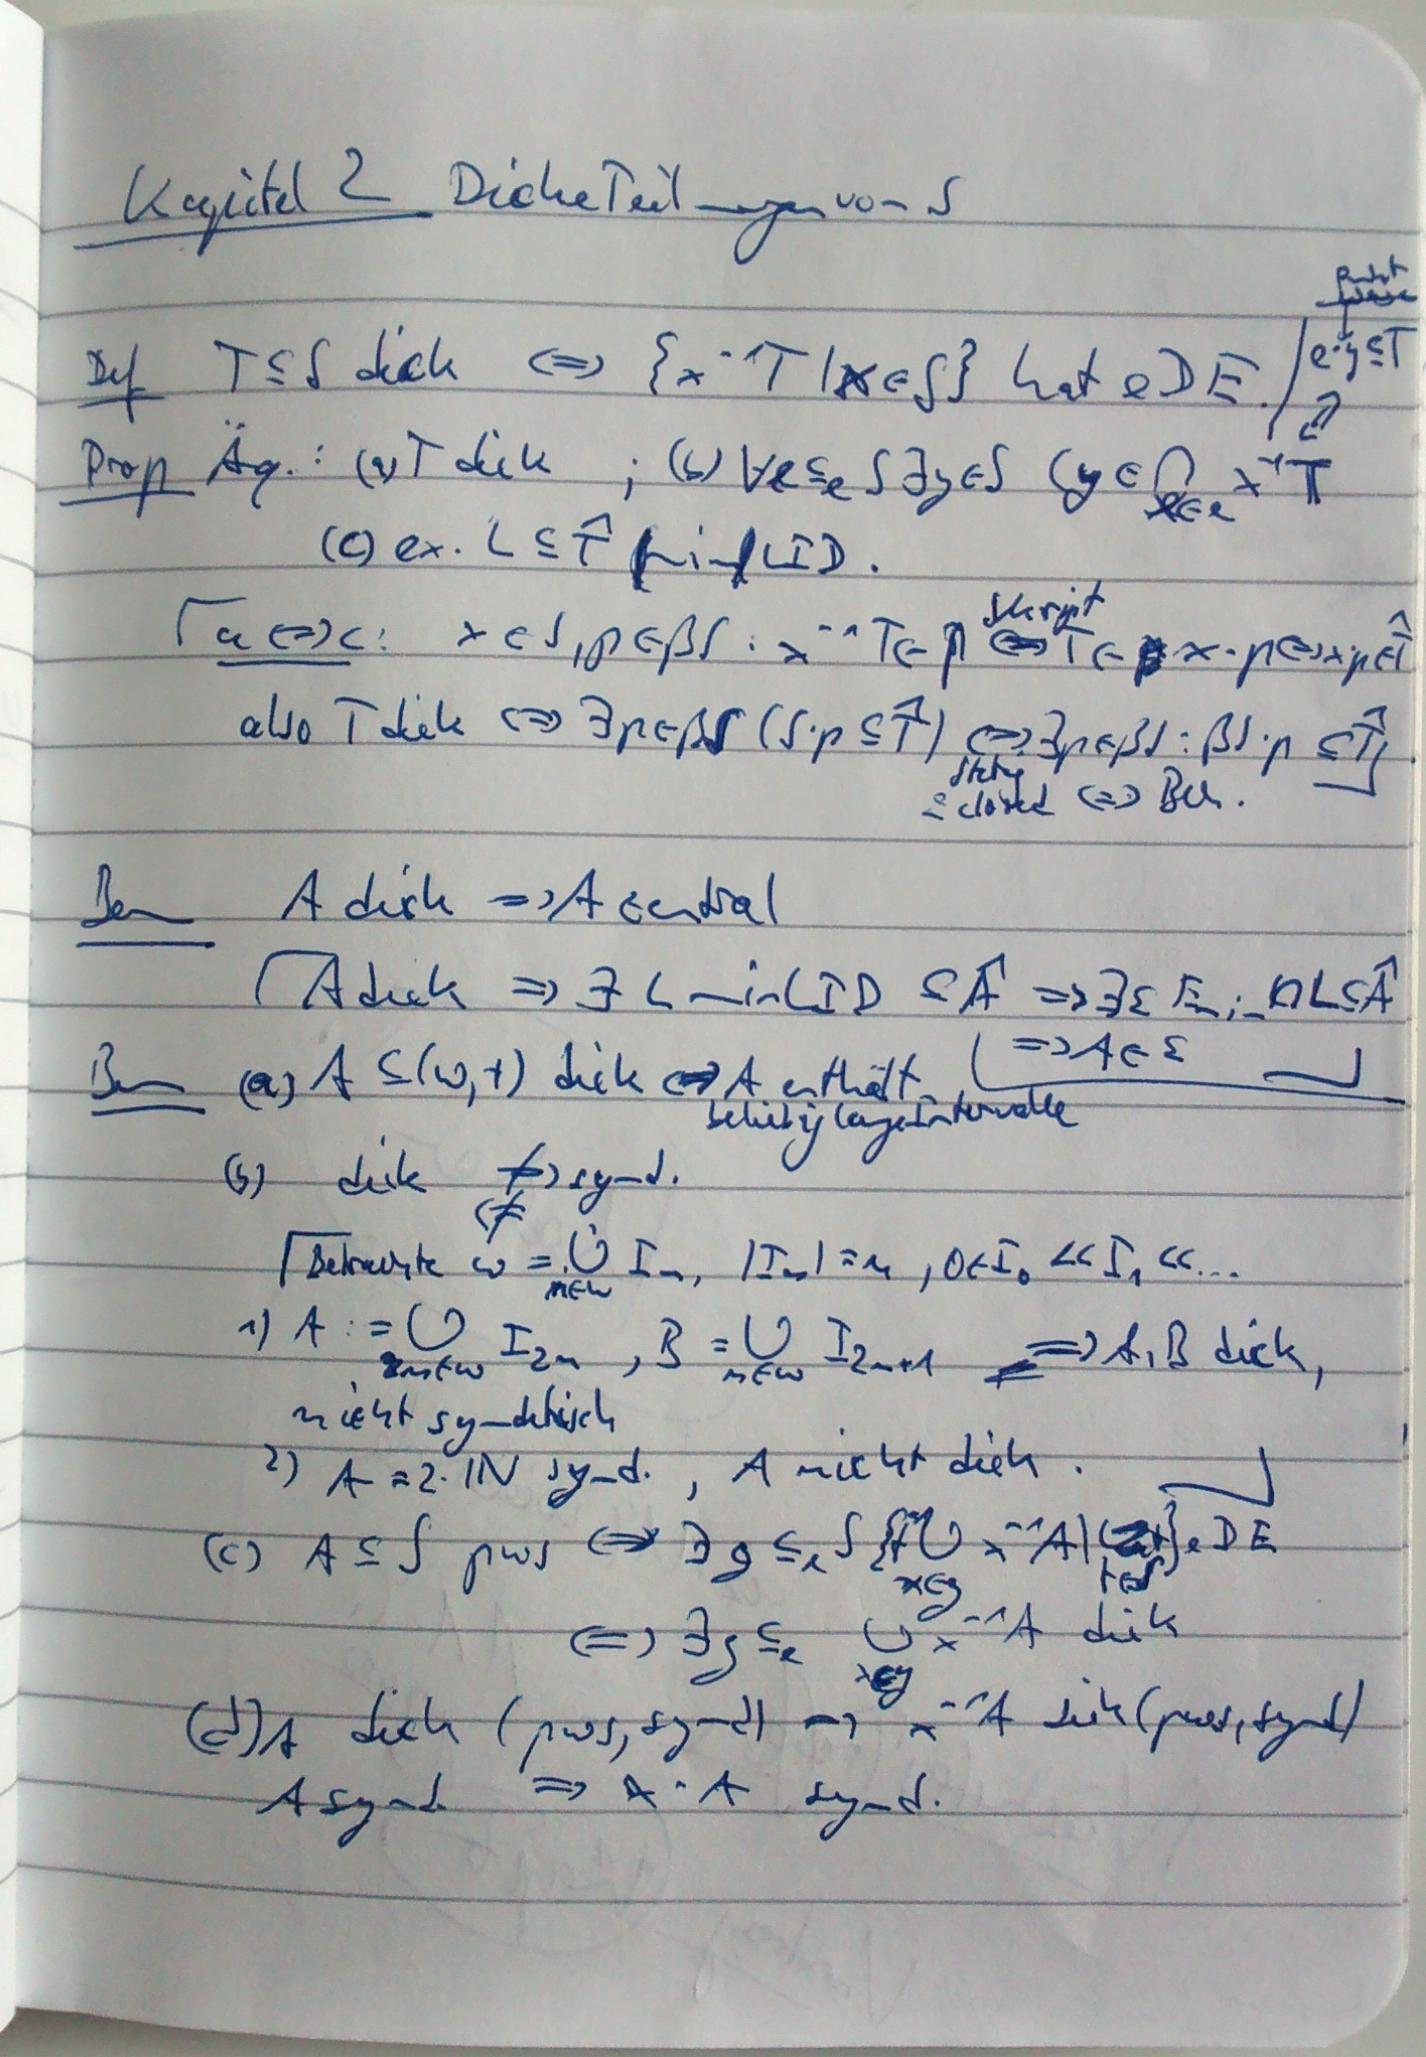 Kapitel 2 Dicke Teilmengen von S
Def T ⊆ S dick ⇔ {x⁻¹T | x ∈ S} hat eDE. / e·y ⊆ T
Prop Äq.: (a) T dick ; (b) ∀e ⊆ₑ S ∃y∈S (y ∈ ⋂_{x∈e} x⁻¹T
(c) ex. L ⊆ T̂ min LID.
⌈a⇔c: x∈S, p∈βS : x⁻¹T ∈ p ⇔ (Skript) T ∈ x·p ⇔ x·p ∈ T̂
also T dick ⇔ ∃p∈βS (S·p ⊆ T̂) ⇔ ∃p∈βS : βS·p ⊆ T̂⌋
closed ⇔ Beh.
Bem A dick ⇒ A zentral
⌈A dick ⇒ ∃ L min LID ⊆ Â ⇒ ∃ε E_min ∩ L ⊆ Â
⇒ A ∈ ε ⌋
Bem (a) A ⊆ (ω,+) dick ⇔ A enthält
beliebig lange Intervalle
(b) dick ⇏ synd.
⇍
⌈Betrachte ω = ⋃̇_{n∈ω} Iₙ, |Iₙ| = n, 0∈I₀ << I₁ << ...
1) A := ⋃_{n∈ω} I₂ₙ, B = ⋃_{n∈ω} I₂ₙ₊₁ ⇒ A, B dick,
nicht syndetisch
2) A = 2·ℕ synd., A nicht dick. ⌋
(c) A ⊆ S pws ⇔ ∃g ⊆ₑ S {t⁻¹ ⋃_{x∈g} x⁻¹A | t∈S} eDE
⇔ ∃g ⊆ₑ ⋃_{x∈g} x⁻¹A dick
(d) A dick (pws, synd) ⇒ x⁻¹A dick (pws, synd)
A synd. ⇒ x·A synd.